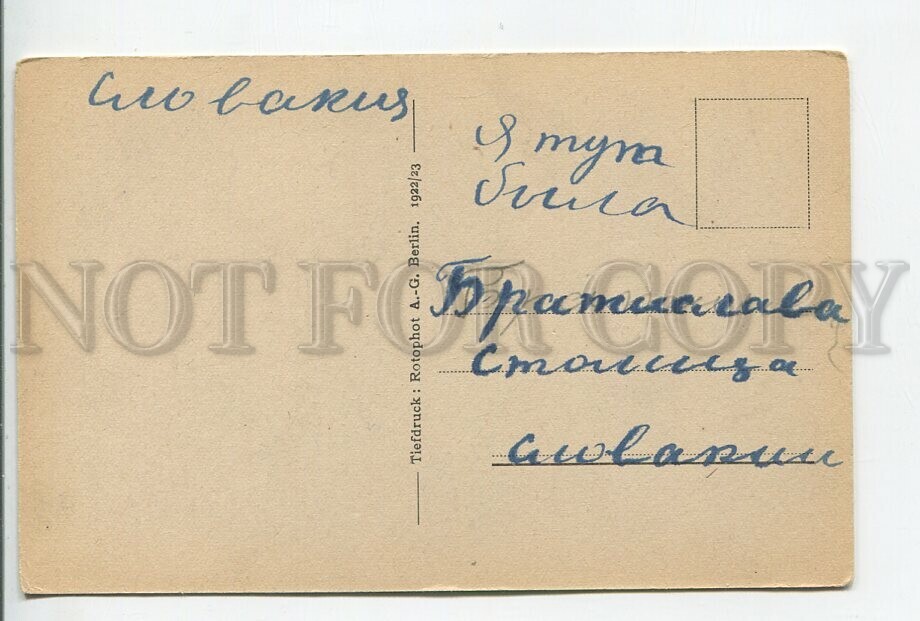 Словакия
Я тут
была
Братислава
столица
Словакии
Tiefdruck: Rotophot A.-G. Berlin. 1922/23
NOT FOR COPY